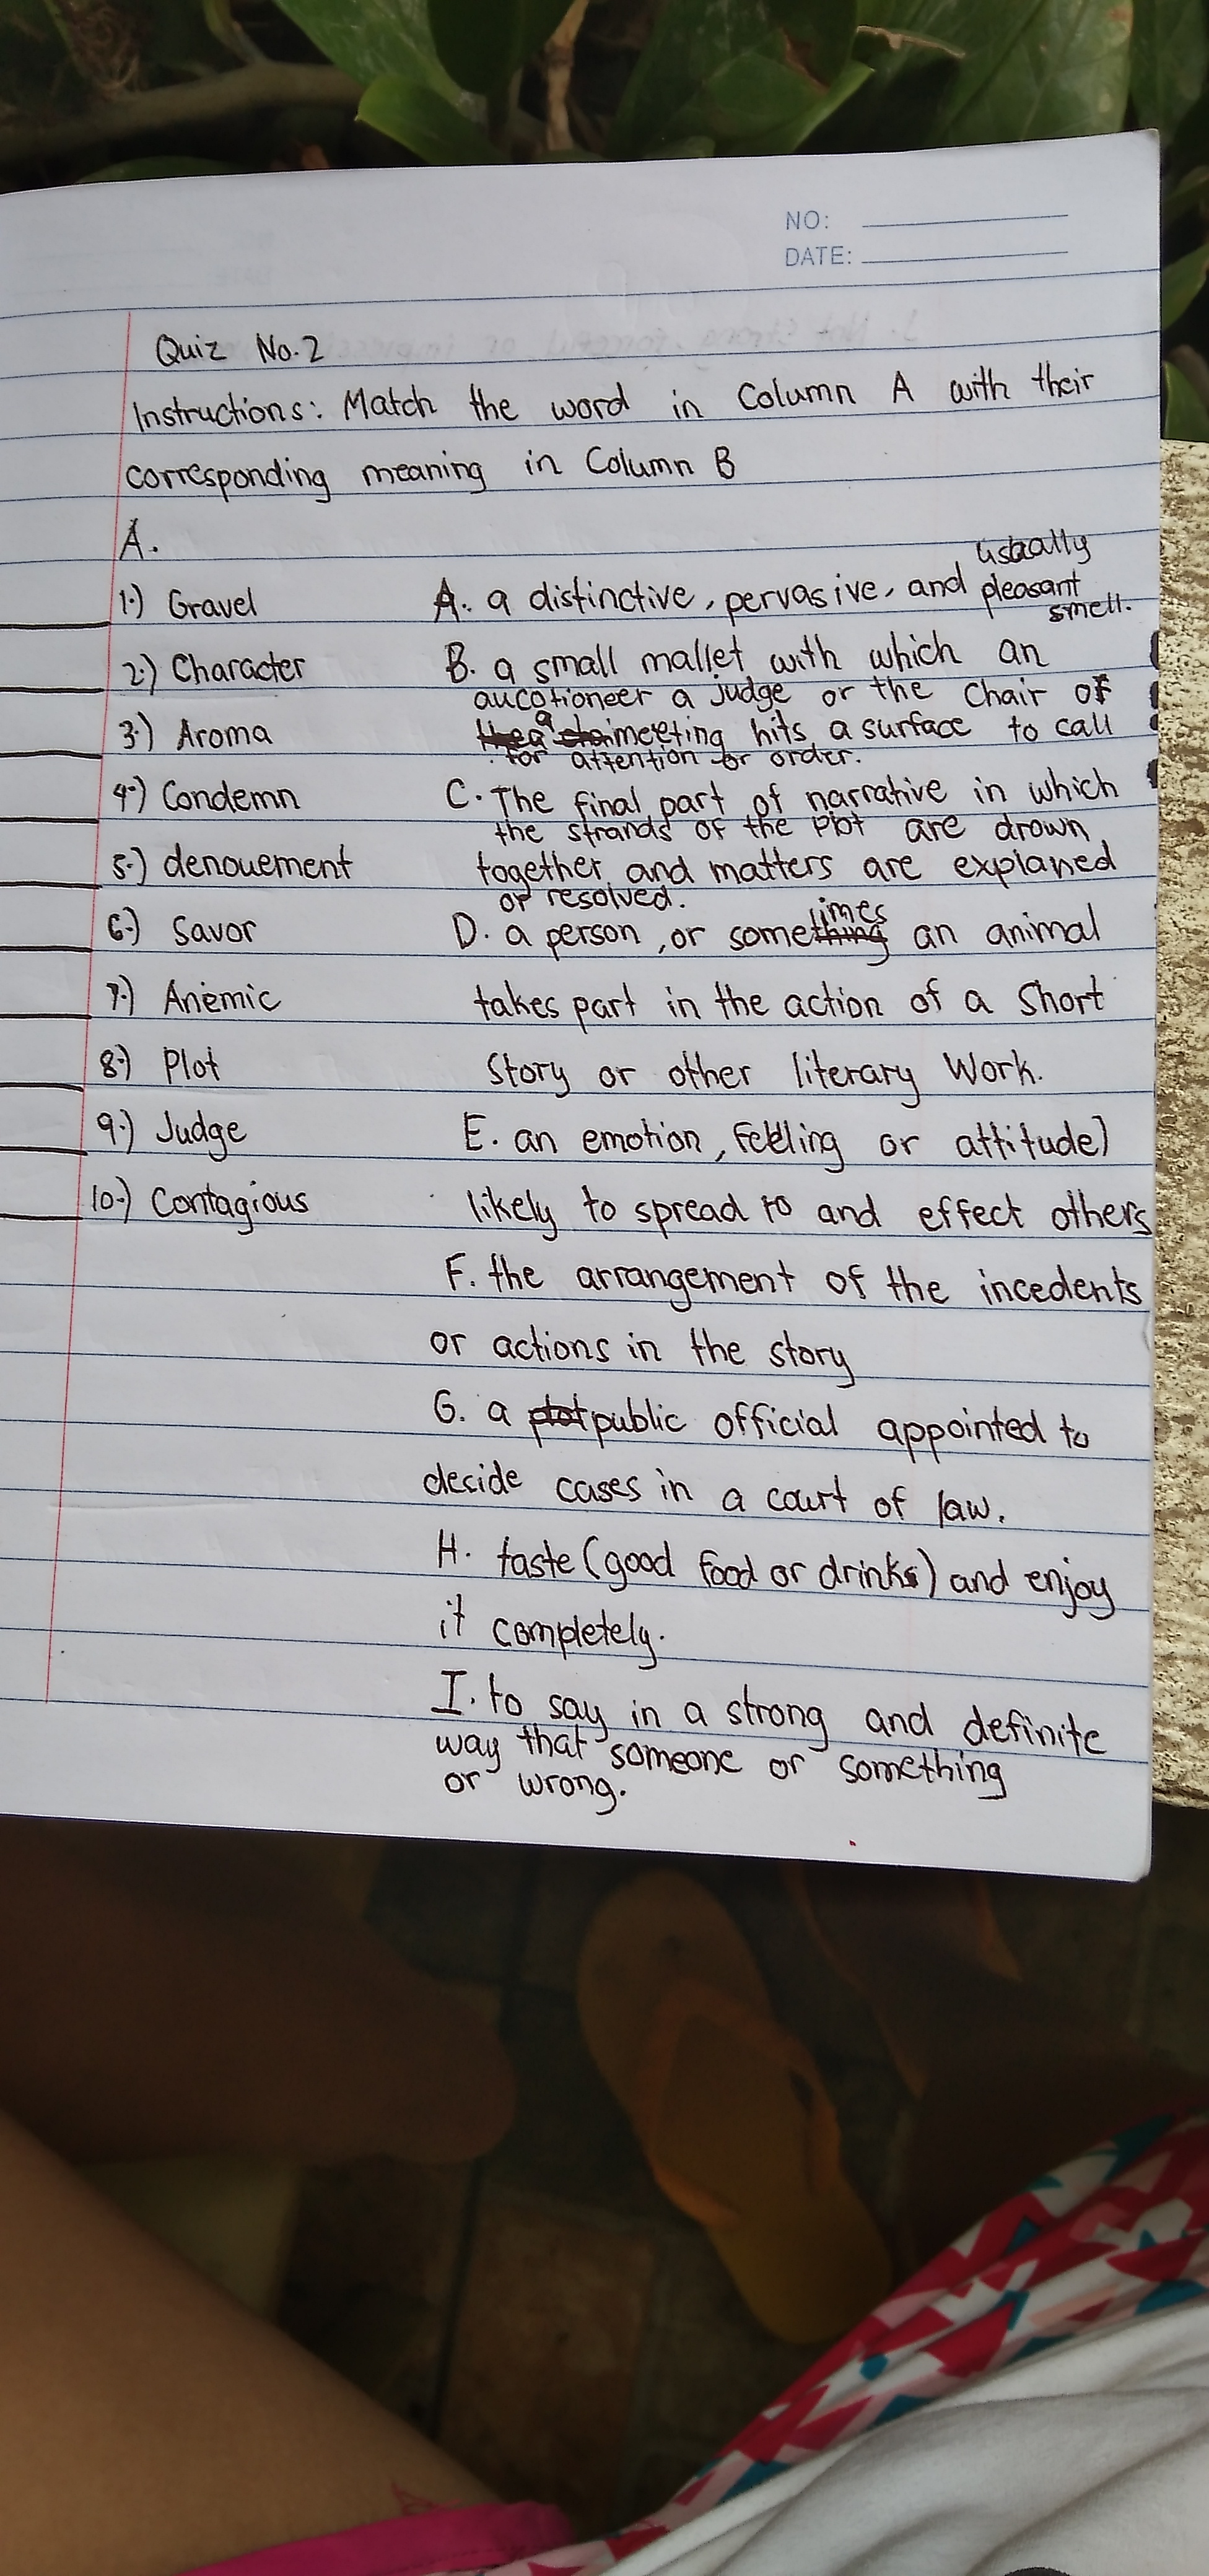 NO:
DATE:
Quiz No.2
Instructions: Match the word in Column A with their
corresponding meaning in Column B
A.
1.) Gravel
2.) Character
3.) Aroma
4.) Condemn
5.) denouement
6.) Savor
7.) Anemic
8.) Plot
9.) Judge
10.) Contagious
A. a distinctive, pervasive, and usually pleasant
smell.
B. a small mallet with which an
aucotioneer a judge or the Chair of
a meeting hits a surface to call
for attention or order.
C. The final part of narrative in which
the strands of the plot are drown
together and matters are explaned
or resolved.
D. a person, or sometimes an animal
takes part in the action of a Short
Story or other literary Work.
E. an emotion, feeling or attitude)
likely to spread to and effect others
F. the arrangement of the incedents
or actions in the story
G. a public official appointed to
decide cases in a court of law.
H. taste (good food or drinks) and enjoy
it completely.
I. to say in a strong and definite
way that someone or something
or wrong.